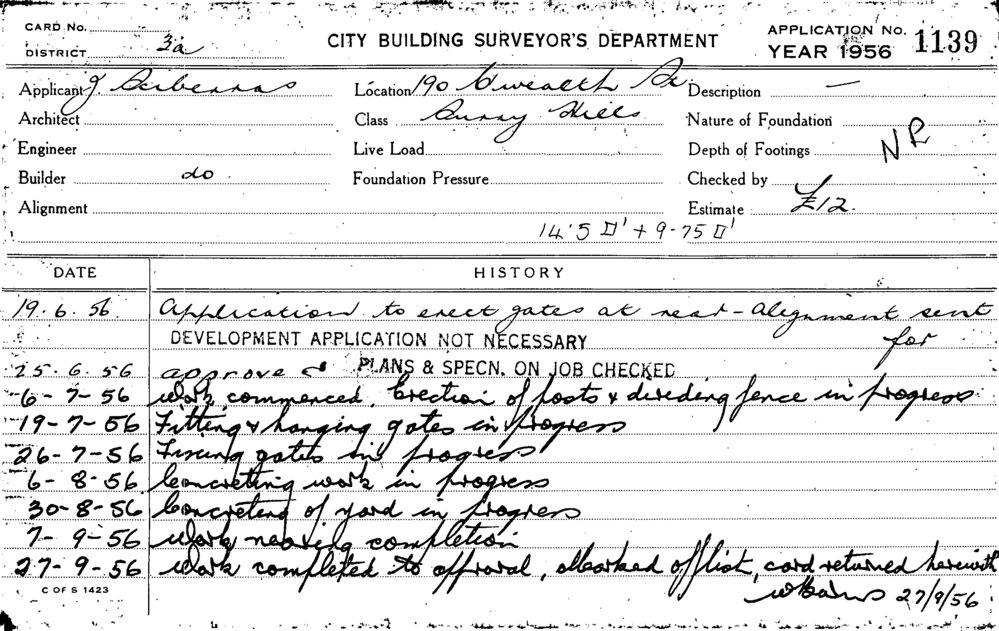 CARD No.
DISTRICT 3a
CITY BUILDING SURVEYOR'S DEPARTMENT
APPLICATION No. 1139
YEAR 1956
Applicant J
Location 190 C'wealth St
Description —
Architect
Class Surry Hills
Nature of Foundation
Engineer
Live Load
Depth of Footings NR
Builder do
Foundation Pressure
Checked by
Alignment
Estimate £12.
14·5 □' + 9·75 □'
DATE HISTORY
19. 6. 56 Application to erect gates at rear – Alignment sent for
DEVELOPMENT APPLICATION NOT NECESSARY
25. 6. 56 approved PLANS & SPECN. ON JOB CHECKED
6-7-56 Work commenced. Erection of posts & dividing fence in progress
19-7-56 Fitting & hanging gates in progress
26-7-56 Fixing gates in progress
6-8-56 Concreting work in progress
30-8-56 Concreting of yard in progress
7-9-56 Work nearing completion
27-9-56 Work completed to approval, marked off list, card returned herewith
27/9/56
C OF S 1423